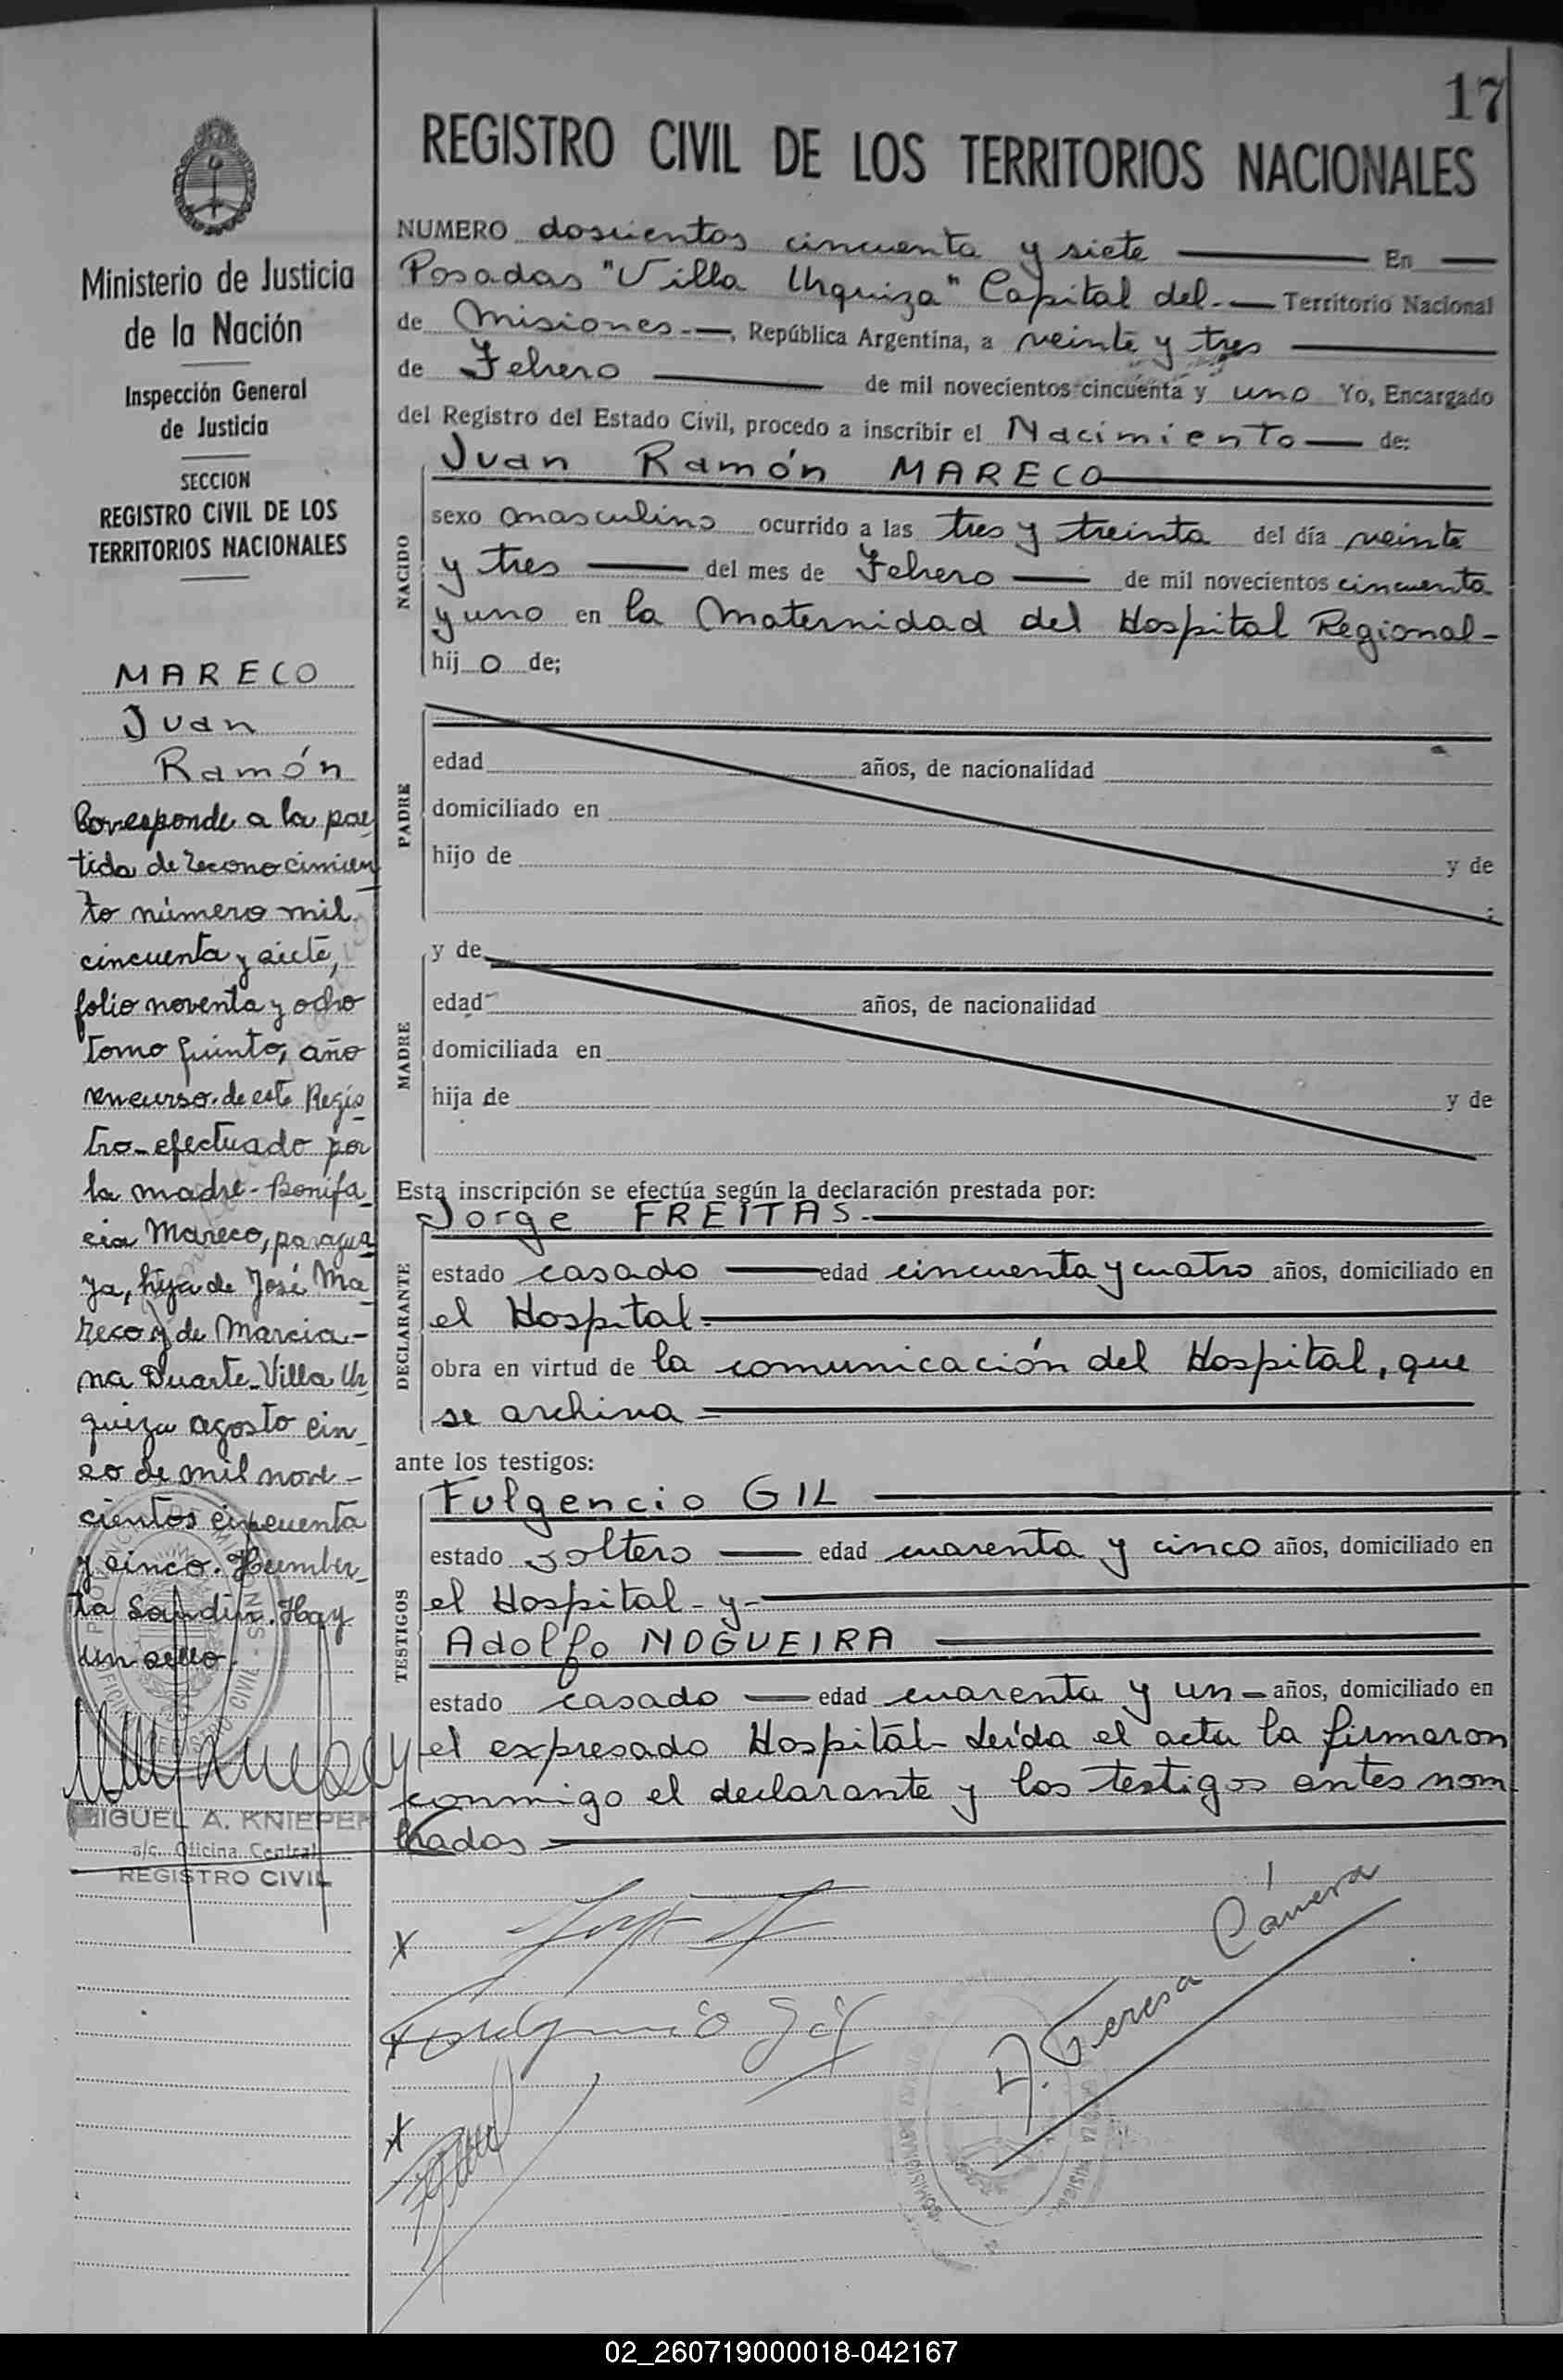 17
REGISTRO CIVIL DE LOS TERRITORIOS NACIONALES
Ministerio de Justicia
de la Nación
Inspección General
de Justicia
SECCION
REGISTRO CIVIL DE LOS
TERRITORIOS NACIONALES
MARECO
Juan
Ramón
Corresponde a la par
tida de reconocimien
to número mil
cincuenta y siete,
folio noventa y ocho
tomo quinto, año
en curso de este Regis
tro - efectuado por
la madre - Bonifa
cia Mareco, paragua
ya, hija de José Ma
reco y de Marcia-
na Duarte - Villa Ur
quiza agosto cin
co de mil nove-
cientos cincuenta
y cinco. Humber
to Sandin. Hay
un sello.
MIGUEL A. KNIEPER
a/c. Oficina Central
REGISTRO CIVIL
NUMERO doscientos cincuenta y siete En
Posadas "Villa Urquiza" Capital del.- Territorio Nacional
de Misiones.-, República Argentina, a veinte y tres
de Febrero de mil novecientos cincuenta y uno Yo, Encargado
del Registro del Estado Civil, procedo a inscribir el Nacimiento de:
NACIDO
Juan Ramón MARECO
sexo masculino ocurrido a las tres y treinta del día veinte
y tres del mes de Febrero de mil novecientos cincuenta
y uno en la Maternidad del Hospital Regional-
hij o de;
PADRE
edad años, de nacionalidad
domiciliado en
hijo de y de
;
MADRE
y de
edad años, de nacionalidad
domiciliada en
hija de y de
Esta inscripción se efectúa según la declaración prestada por:
DECLARANTE
Jorge FREITAS.
estado casado edad cincuenta y cuatro años, domiciliado en
el Hospital.
obra en virtud de la comunicación del Hospital, que
se archiva
ante los testigos:
TESTIGOS
Fulgencio GIL
estado soltero edad cuarenta y cinco años, domiciliado en
el Hospital - y -
Adolfo NOGUEIRA
estado casado edad cuarenta y un - años, domiciliado en
el expresado Hospital - Leída el acta la firmaron
conmigo el declarante y los testigos antes nom
brados
x
x Fulgencio Gil
x
A. Teresa Cámera
02_260719000018-042167